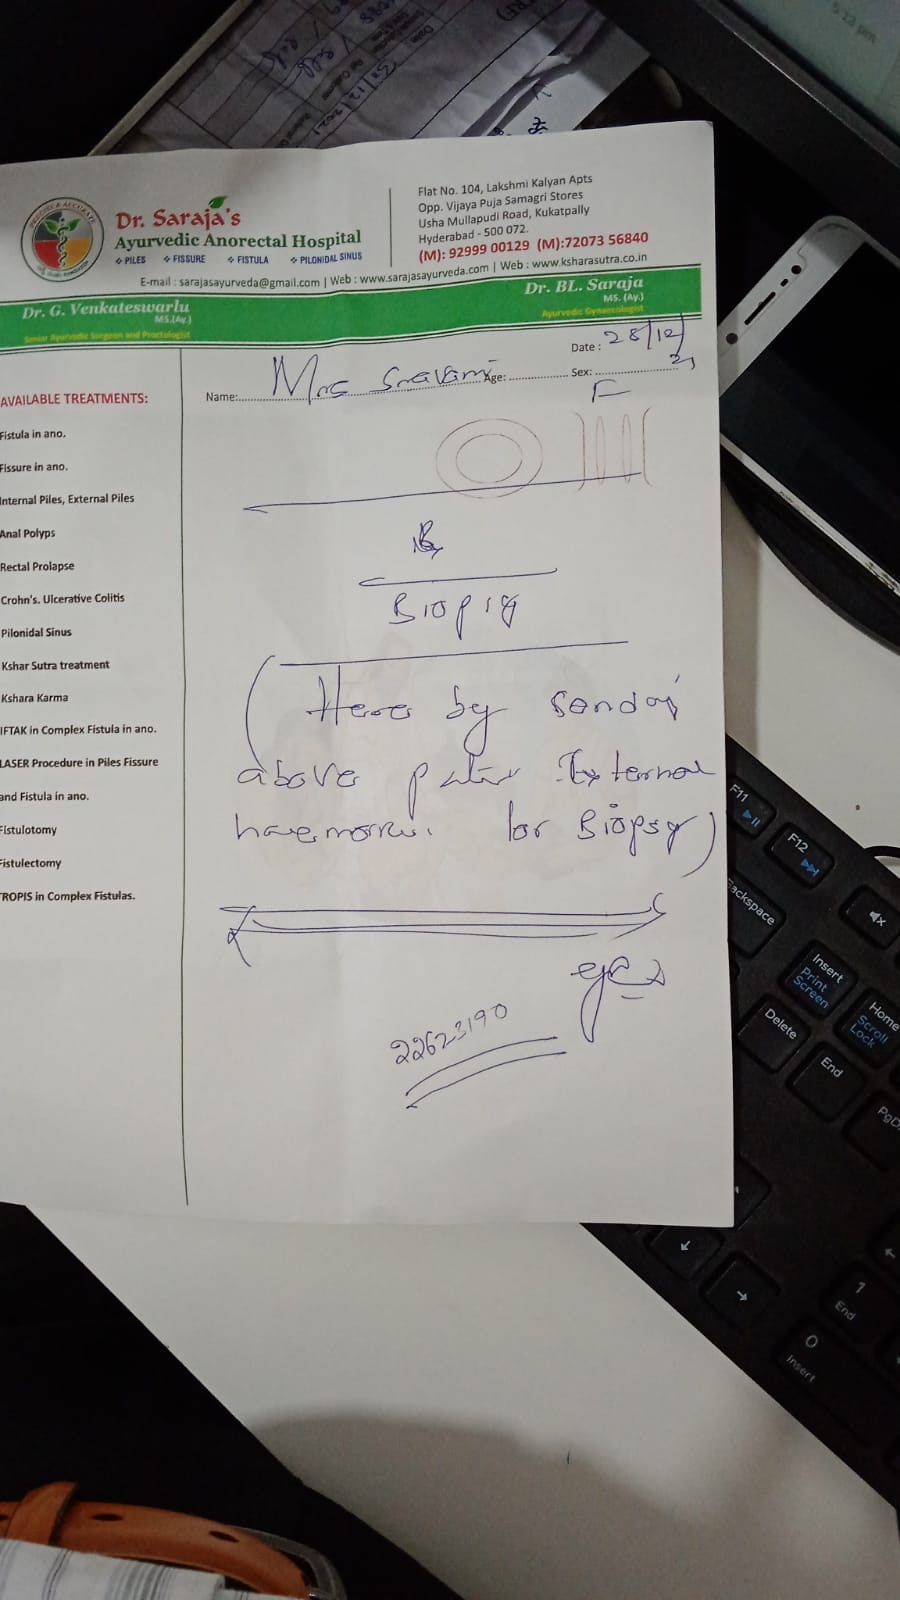 Dr. Saraja's
Ayurvedic Anorectal Hospital
❖ PILES ❖ FISSURE ❖ FISTULA ❖ PILONIDAL SINUS
Flat No. 104, Lakshmi Kalyan Apts
Opp. Vijaya Puja Samagri Stores
Usha Mullapudi Road, Kukatpally
Hyderabad - 500 072.
(M): 92999 00129 (M):72073 56840
E-mail : sarajasayurveda@gmail.com | Web : www.sarajasayurveda.com | Web : www.ksharasutra.co.in
Dr. G. Venkateswarlu
MS.(Ay.)
Senior Ayurvedic Surgeon and Proctologist
Dr. BL. Saraja
MS. (Ay.)
Ayurvedic Gynaecologist
Date : 28/12/21
Name: Mrs Sravani Age: Sex: F
AVAILABLE TREATMENTS:
Fistula in ano.
Fissure in ano.
Internal Piles, External Piles
Anal Polyps
Rectal Prolapse
Crohn's. Ulcerative Colitis
Pilonidal Sinus
Kshar Sutra treatment
Kshara Karma
IFTAK in Complex Fistula in ano.
LASER Procedure in Piles Fissure
and Fistula in ano.
Fistulotomy
Fistulectomy
TROPIS in Complex Fistulas.
Biopsy
(Here by sending
above External
for Biopsy)
22623190
5:13 pm
30/12/2021
F11
F12
Backspace
Insert
Print
Screen
Delete
Home
Scroll
Lock
End
PgD
1
End
0
Insert